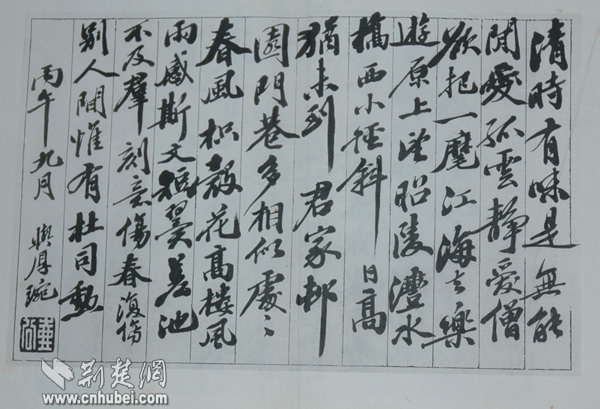 清時有味是無能
閒愛孤雲靜愛僧
欲把一麾江海去樂
遊原上望昭陵灃水
橋西小徑斜日高
猶未到君家邨
園門巷多相似處〻
春風枳殼花高樓風
雨感斯文短翼差池
不及羣刻意傷春復傷
別人間惟有杜司勳
丙午九月 厚琬
荆楚網
www.cnhubei.com